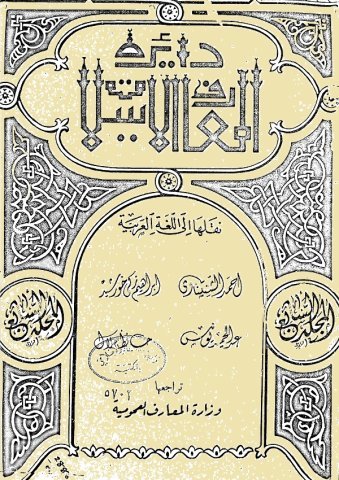 دائرة
المعارف الإسلامية
نقلها إلى اللغة العربية
أحمد الشنتناوي
إبراهيم زكي خورشيد
عبد الحميد يونس
حافظ جلال
المجلد السابع
المجلد السابع
تراجعها
وزارة المعارف العمومية